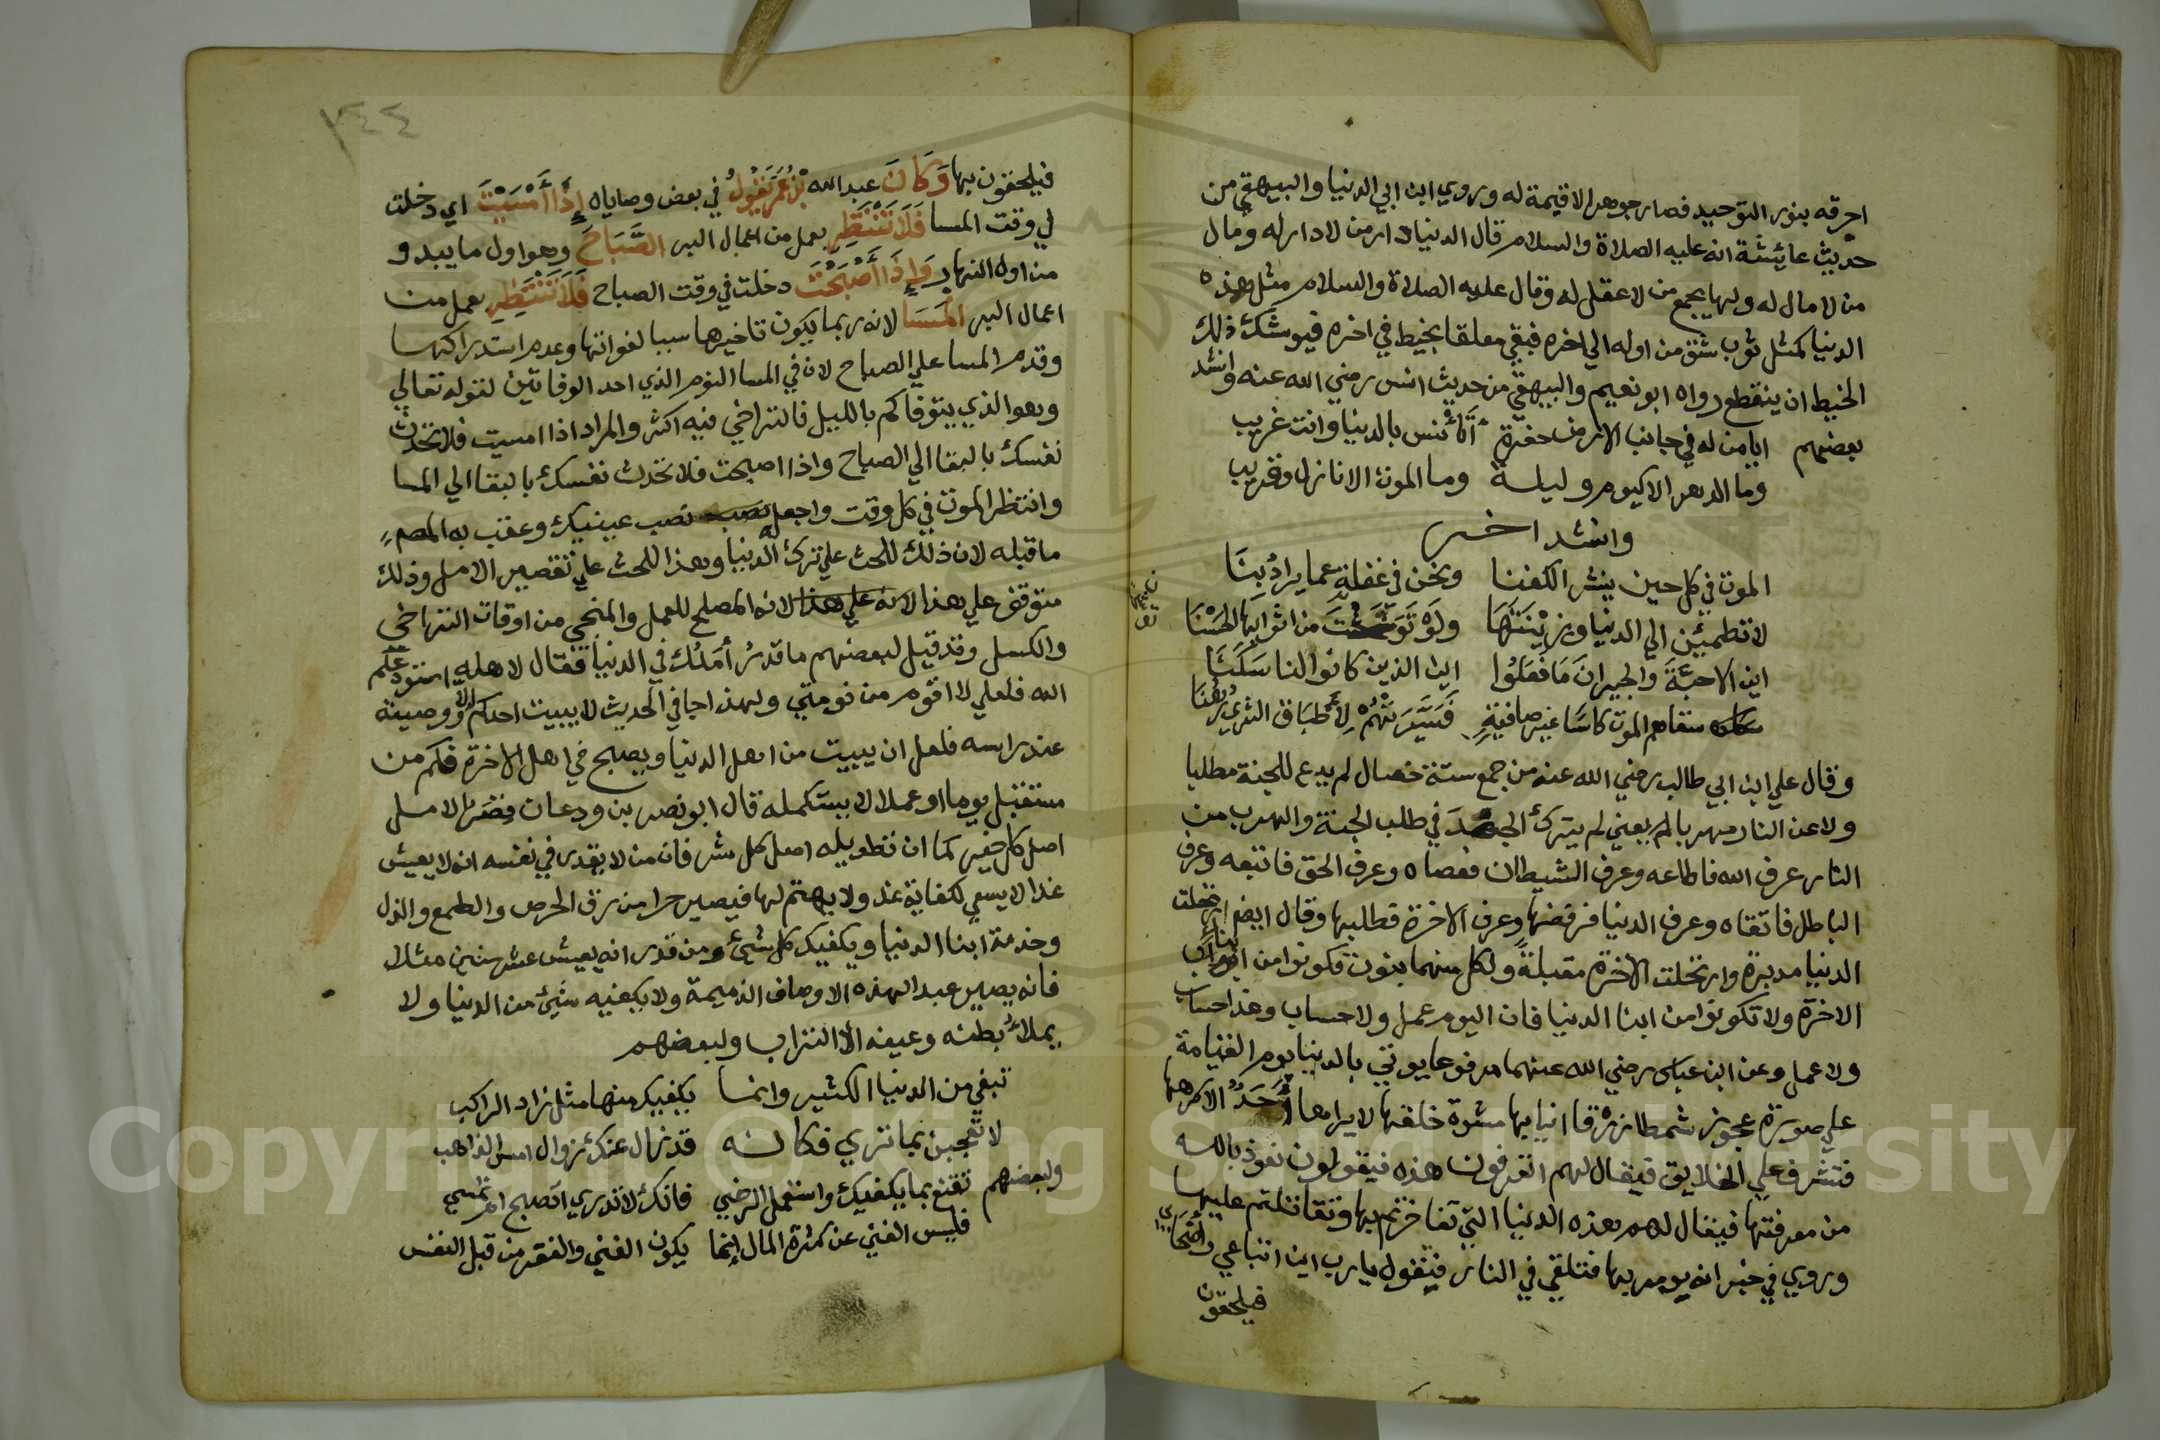 احرقه بنور التوحيد فصار جوهرا لاقيمة له وروي ابن ابي الدنيا والبيهقي من
حديث عائشة انه عليه الصلاة والسلام قال الدنيا دار من لا دار له ومال
من لا مال له ولها يجمع من لا عقل له وقال عليه الصلاة والسلام مثل هذه
الدنيا كمثل ثوب شق من اوله الي اخره فبقي معلقا بخيط في اخره فيوشك ذلك
الخيط ان ينقطع رواه ابو نعيم والبيهقي من حديث انس رضي الله عنه وانشد
بعضهم ايا من له في جانب الارض حفرة أتأنس بالدنيا وانت غريب
وما الدهر الا كيوم وليلة وما الموت الا نازل وقريب
وانشد اخر
الموت في كل حين ينشر الكفنا ونحن في غفلة عما يرادُ بِنَا
لا تطمئن الي الدنيا وزِيْنَتَهَا ولَوْ تَوَشَّحْتَ من اثوابها الحَسَنَا
اين الاحبَّةَ والجيرانَ مَا فَعَلُوا اين الذين كانوا لنا سَكَنَا
سقاهم الموت كاسًا غير صافيةٍ فَسَيَّرَتْهُمْ لِأَطْبَاق الثري رُهُنَا
وقال علي ابن ابي طالب رضي الله عنه من جمع ستة خصال لم يدع للجنة مطلبا
ولا عن النار مهربا لم يعني لم يترك الجهدَ في طلب الجنة والهرب من
النار عرف الله فاطاعه وعرف الشيطان فعصاه وعرف الحق فاتبعه وعرف
الباطل فاتقاه وعرف الدنيا فرفضها وعرف الاخرة فطلبها وقال ايضا ارتحلت
الدنيا مدبرة وارتحلت الاخرة مقبلةً ولكل منهما بنون فكونوا من ابناء
الاخرة ولا تكونوا من ابنا الدنيا فان اليوم عمل ولا حساب وغدا حساب
ولا عمل وعن ابن عباس رضي الله عنهما مرفوعا يوتي بالدنيا يوم القيامة
علي صورة عجوز شمطا زرقا انيابها مشوة خلقها لا يراها أَحَدٌ الا كرهها
فتشرف علي الخلايق فيقال لهم اتعرفون هذه فيقولون نعوذ بالله
من معرفتها فيقال لهم هذه الدنيا التي تفاخرتم بها وتقاتلتم عليها
وروي في خبر انه يومر بها فتلقي في النار فيقول يا رب اين اتباعي واصحابي
فيلحقون
٢٤٤
فيلحقون بها وَكَانَ عبد الله بْنُ عُمَرَ يَقُولُ في بعض وصاياه إِذَا أَمْسَيْتَ اي دخلت
في وقت المسا فَلَا تَنْتَظِرِ بعمل من اعمال البر الصَّبَاحَ وهو اول ما يبدو
من اول النهار وَإِذَا أَصْبَحْتَ دخلت في وقت الصباح فَلَا تَنْتَظِرِ بعمل من
اعمال البر المَسَا لانه ربما يكون تاخيرها سببا لفواتها وعدم استدراكها
وقدم المسا علي الصباح لان في المسا النوم الذي احد الوفاتين لقوله تعالي
وهو الذي يتوفاكم بالليل فالتراخي فيه اكثر والمراد اذا امسيت فلا تحدث
نفسك بالبقا الي الصباح واذا اصبحت فلا تحدث نفسك بالبقا الي المسا
وانتظر الموت في كل وقت واجعله نصب عينيك وعقب به المص
ما قبله لان ذلك للحث علي ترك الدنيا وهذا للحث علي تقصير الامل وذلك
متوقف علي هذا لانه علي هذا لانه المصلح للعمل والمنجي من اوقات التراخي
والكسل وقد قيل لبعضهم ما قدرُ أَمَلُكَ في الدنيا فقال لاهله استودعكم
الله فلعلي لا اقوم من نومتي ولهذا جا في الحديث لا يبيت احدكم الا ووصيته
عند راسه فلعل ان يبيت من اهل الدنيا ويصبح في اهل الاخرة فكم من
مستقبل يوما او عملا لا يستكمله قال ابو نصر بن ودعان قِصَرُ الامل
اصل كل خير كما ان تطويله اصل كل شر فان من لا يقدر في نفسه انه لا يعيش
غدا لا يسعي لكفاية غد ولا يهتم لها فيصير حرا من رق الحرص والطمع والذل
وخدمة ابنا الدنيا ويكفيك كل شيء ومن قدر انه يعيش عشر سنين مثلا
فانه يصير عبدا لهذه الاوصاف الذميمة ولا يكفيه شيئ من الدنيا ولا
يملأ بطنه وعينه الا التراب ولبعضهم
تبغي من الدنيا الكثير وانما يكفيك منها مثل زاد الراكب
لا تعجبن بما تري فكانه قد زال عنك زوال امس الذاهب
ولبعضهم تقنع بما يكفيك واستعمل الرضي فانك لا تدري اتصبح ام تمسي
فليس الغني عن كثرة المال إنما يكون الغني والفقر من قبل النفس
Copyright © King Saud University